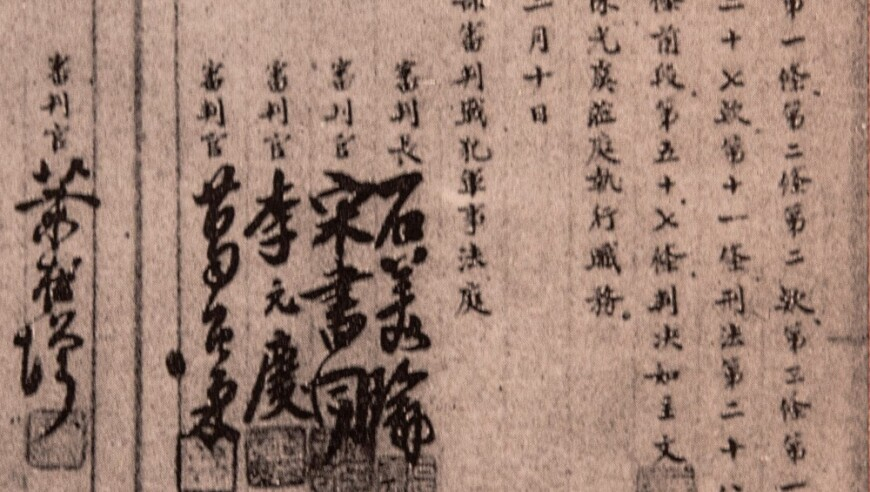 第一條第二條第二款第三條第一
二十七款第十一條刑法第二十
條前段第五十七條判決如主文
光虞蒞庭執行職務。
月十日
部審判戰犯軍事法庭
審判長 石美瑜
審判官 宋書同
審判官 李元慶
審判官 葛召棠
審判官 葉在增